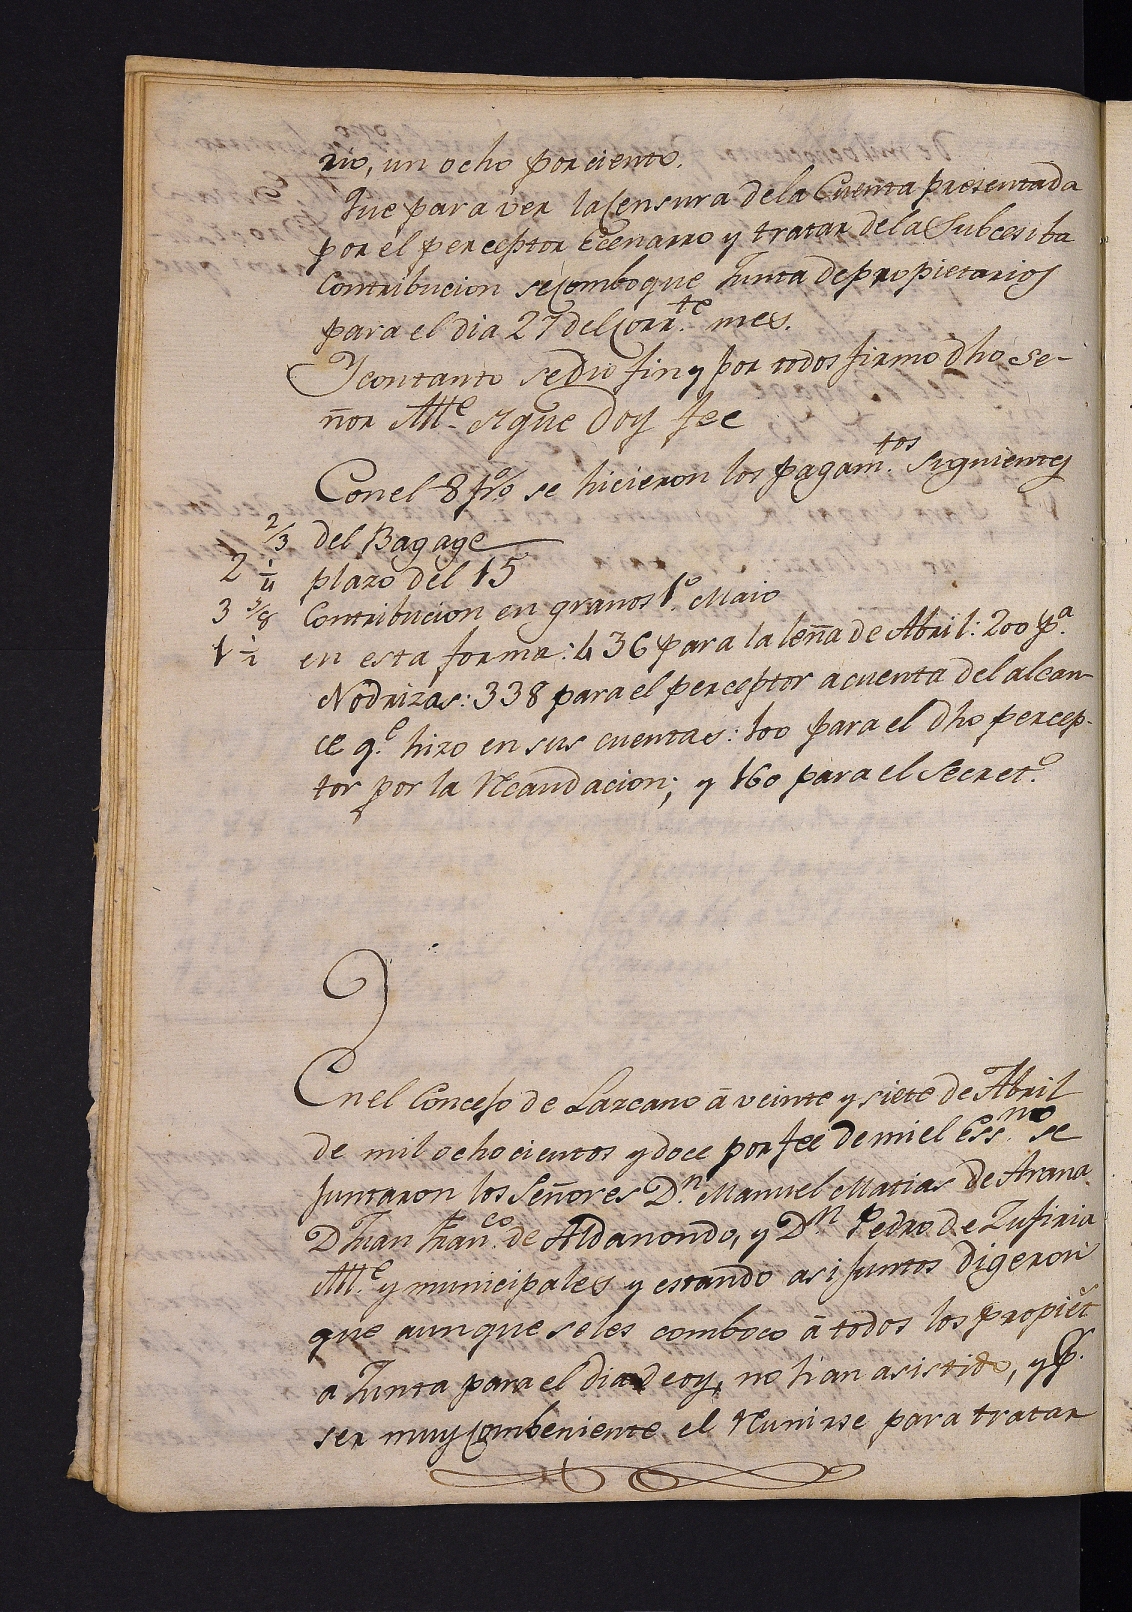 rio, un ocho por ciento.
Que para ver la Censura de la Cuenta presentada
por el perceptor Ecenarro y tratar de la Subcesiba
Contribucion se Comboque Junta de propietarios
para el dia 27 del Corr.te mes.
Y con tanto se dio fin y por todos firmo dho Se-
ñor All.e y que Doy fee
Con el 8 p%o se hicieron los pagam.tos siguientes
2/3 del Bagage
2 1/4 plazo del 15
3 5/8 Contribucion en granos 1.o Maio
1 1/2 en esta forma: 436 para la leña de Abril: 200 p.a
Nodrizas: 338 para el perceptor a cuenta del alcan-
ce q.e hizo en sus cuentas: 100 para el dho percep-
tor por la Recaudacion; y 160 para el Secret.o
En el Concejo de Lazcano â veinte y siete de Abril
de mil ochocientos y doce por fee de mi el Ess.no se
juntaron los Señores D.n Manuel Matias de Arana
D Juan Fran.co de Aldanondo, y D.n Pedro de Zufiria
All.e y municipales y estando asi juntos digeron
que aunque se les comboco â todos los propiet
a Junta para el dia de oy, no han asistido, y p.r
ser muy Combeniente el Runirse para tratar